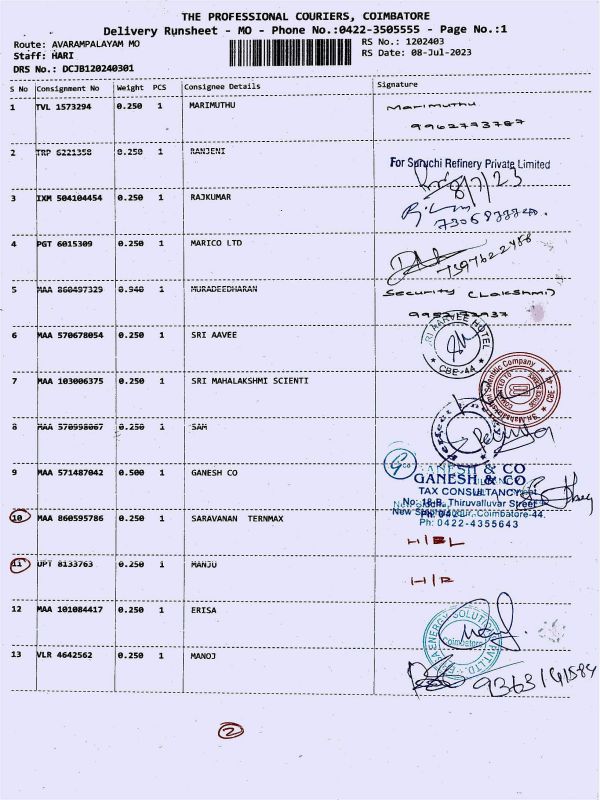 THE PROFESSIONAL COURIERS, COIMBATORE
Delivery Runsheet - MO - Phone No.:0422-3505555 - Page No.:1
Route: AVARAMPALAYAM MO RS No.: 1202403
Staff: HARI RS Date: 08-Jul-2023
DRS No.: DCJB120240301
S No Consignment No Weight PCS Consignee Details Signature
1 TVL 1573294 0.250 1 MARIMUTHU Marimuthu
9962793787
2 TRP 6221358 0.250 1 RANJENI For Suruchi Refinery Private Limited
8/7/23
3 IXM 504104454 0.250 1 RAJKUMAR
4 PGT 6015309 0.250 1 MARICO LTD
7397622488
5 MAA 860497329 0.940 1 MURADEEDHARAN Security (Lakshmi)
6 MAA 570678054 0.250 1 SRI AAVEE SRI AARVEE HOTEL
CBE-44
7 MAA 103006375 0.250 1 SRI MAHALAKSHMI SCIENTI Sri Mahalakshmi Scientific Company
8 MAA 570998067 0.250 1 SAM
9 MAA 571487042 0.500 1 GANESH CO GANESH & CO
GANESH & CO
TAX CONSULTANCY
No: 18-B, Thiruvalluvar Street
Coimbatore-44.
Ph: 0422-4355643
10 MAA 860595786 0.250 1 SARAVANAN TERNMAX H/BL
11 UPT 8133763 0.250 1 MANJU H/R
12 MAA 101084417 0.250 1 ERISA ENERGY SOLUTIONS PVT.LTD.
Coimbatore
13 VLR 4642562 0.250 1 MANOJ
2